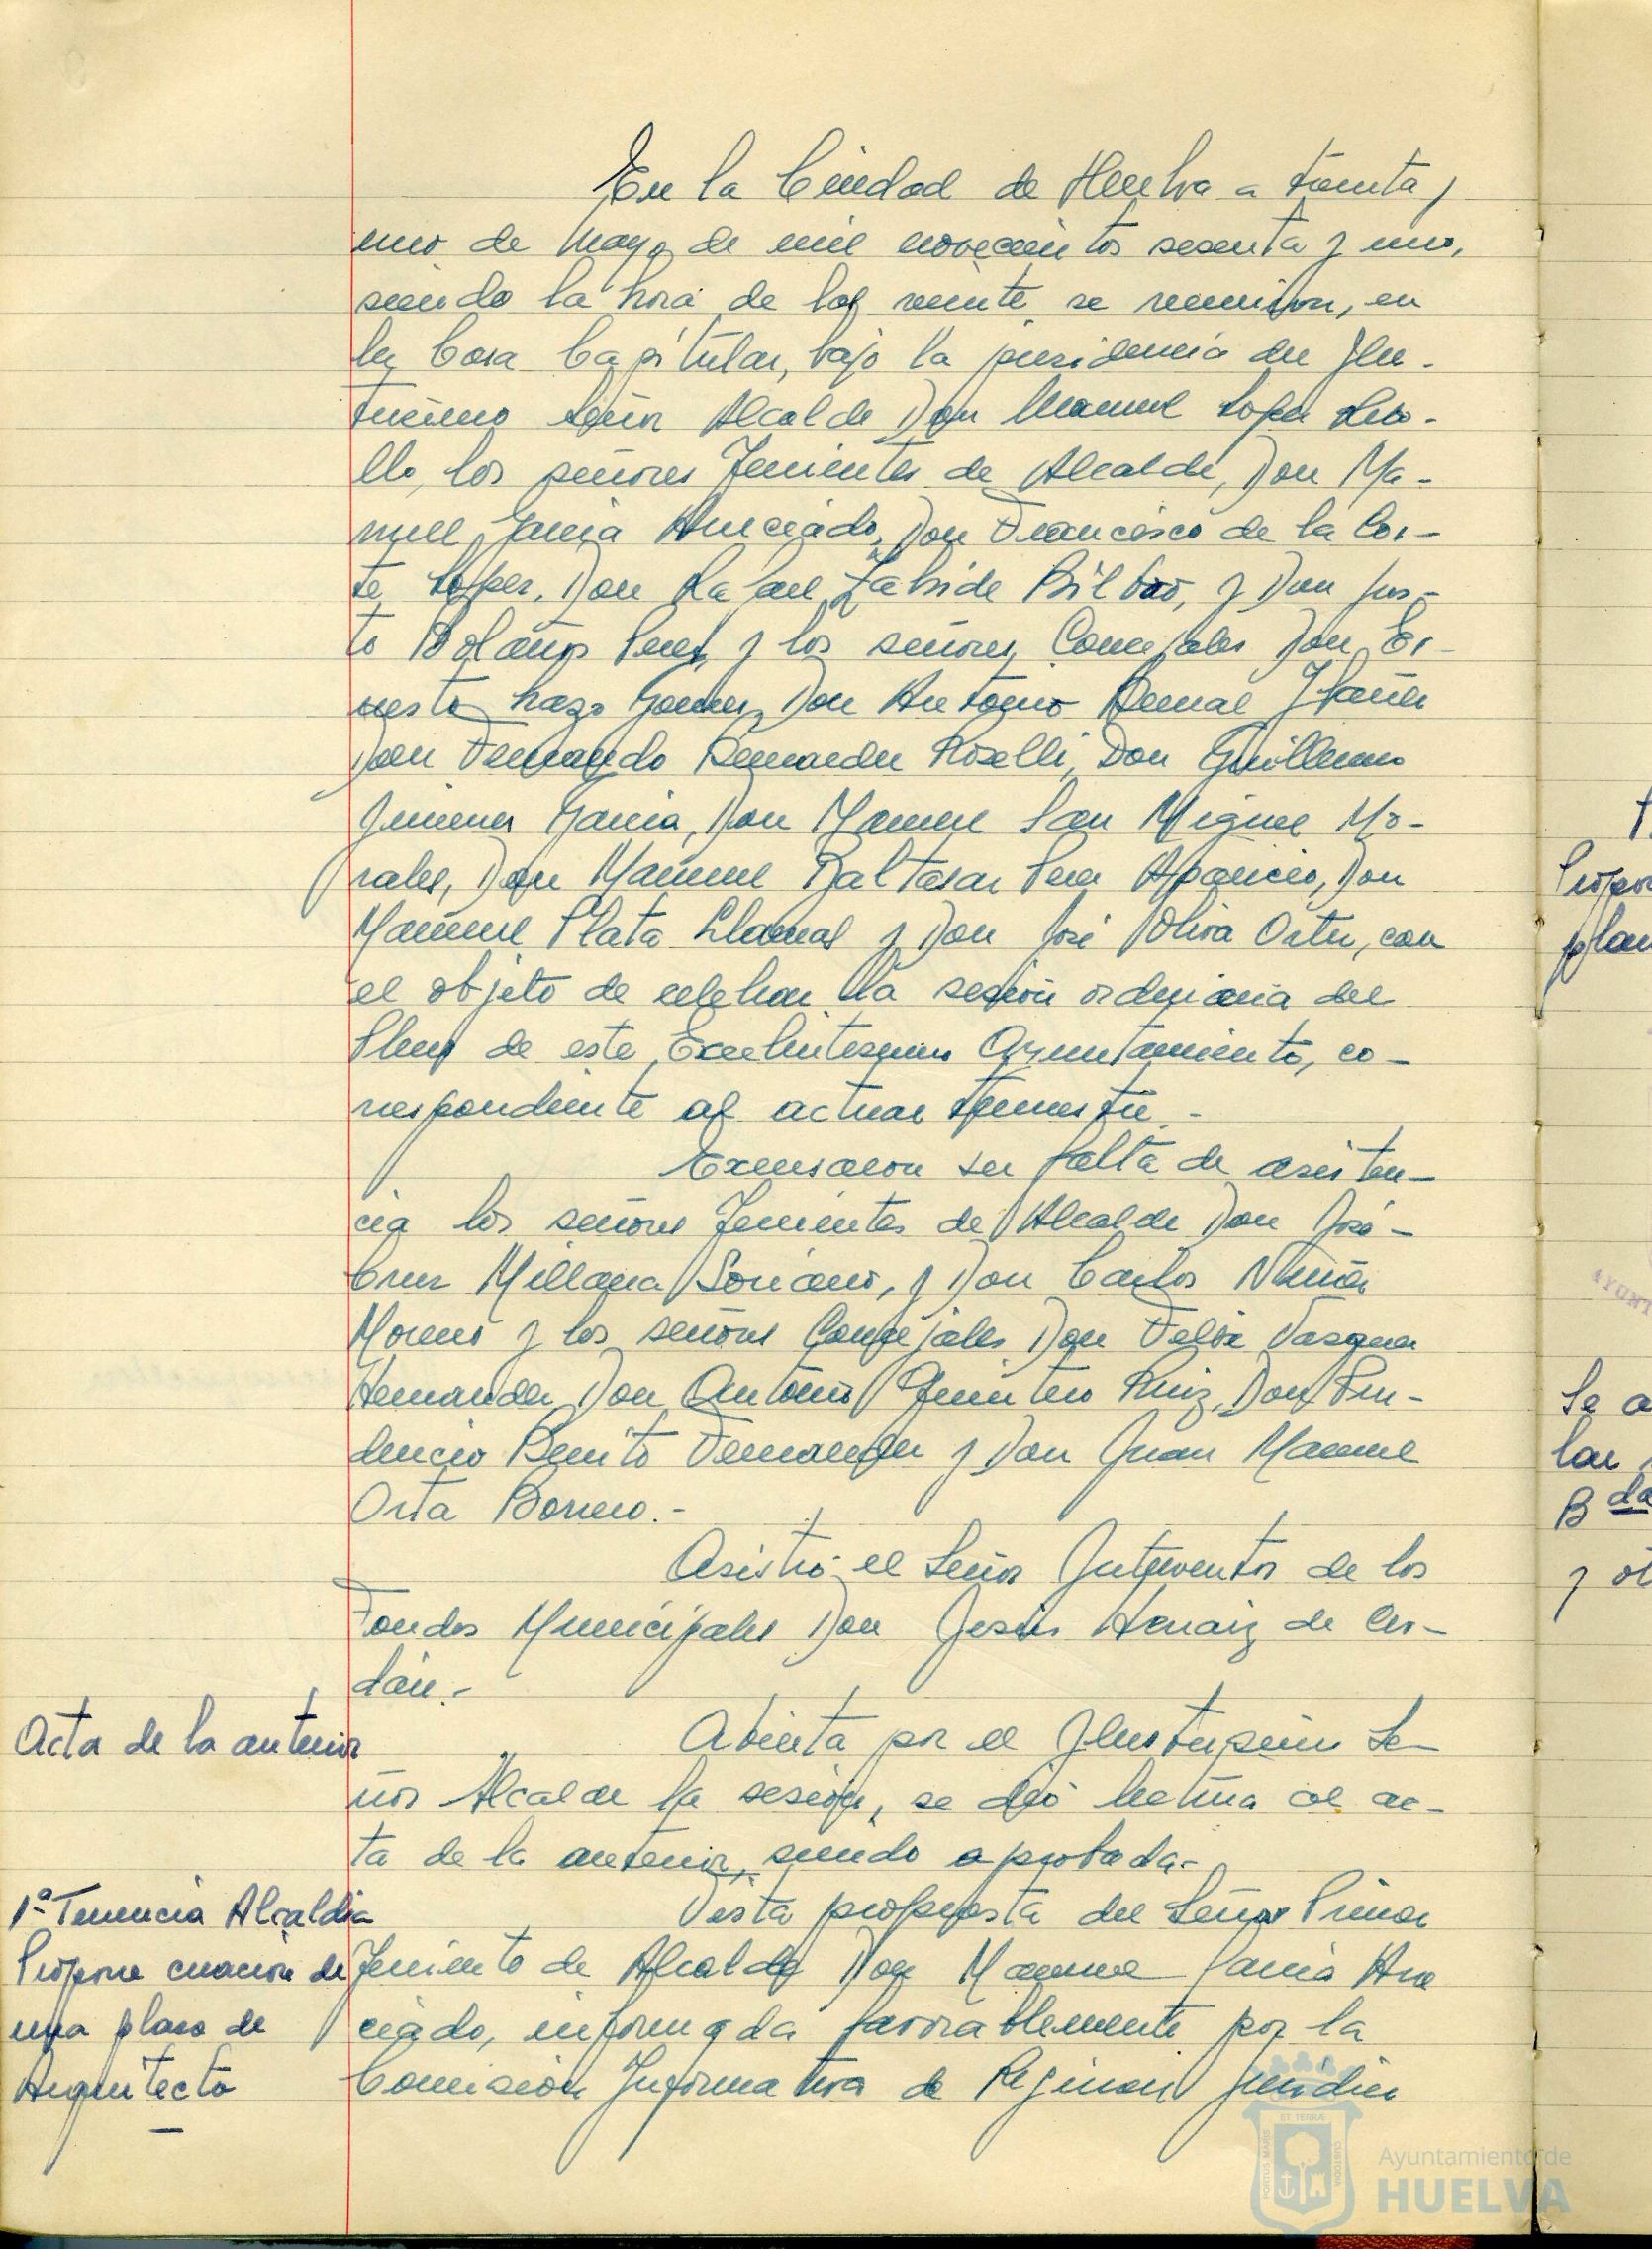 En la Ciudad de Huelva a treinta y
uno de Mayo de mil novecientos sesenta y uno,
siendo la hora de las veinte se reunieron, en
la Casa Capitular, bajo la presidencia del Ilus-
trisimo Señor Alcalde Don Manuel Lopez Rebo-
llo, los señores Tenientes de Alcalde, Don Ma-
nuel Garcia Anceado, Don Francisco de la Cor-
te Lopez, Don Rafael Zabide Bilbao, y Don Jus-
to Bolaños Perez, y los señores Concejales Don Er-
nesto Lazo Gomez, Don Antonio Bernal Ibañez
Don Fernando Bernardez Roselli, Don Guillermo
Jimenez Garcia, Don Manuel San Miguel Mo-
rales, Don Manuel Baltasar Pera Aparicio, Don
Manuel Plata Llamas y Don José Oliva Ortiz, con
el objeto de celebrar la sesión ordinaria del
Pleno de este Excelentisimo Ayuntamiento, co-
rrespondiente al actual trimestre.-
Excusaron su falta de asisten-
cia los señores Tenientes de Alcalde Don José
Cruz Millana Soriano, y Don Carlos Nuñez
Moreno y los señores Concejales Don Felix Vazquez
Hernandez Don Antonio Quintero Ruiz, Don Pru-
dencio Benito Fernandez y Don Juan Manuel
Orta Borrero.-
Asistió el Señor Interventor de los
Fondos Municipales Don Jesús Arnaiz de Cer-
dán.-
Acta de la anterior
Abierta por el Ilustrisimo Se-
ñor Alcalde la sesión, se dió lectura al ac-
ta de la anterior, siendo aprobada.-
1ª Tenencia Alcaldia
Propone creación de
una plaza de
Arquitecto
Vista propuesta del Señor Primer
Teniente de Alcalde Don Manuel Garcia An
ceado, informada favorablemente por la
Comisión Informativa de Regimen Juridico
Propon
plan
Se a
lar
B da
y ot
AYUNT
PORTUS MARIS
ET TERRÆ
CUSTODIA
Ayuntamiento de
HUELVA